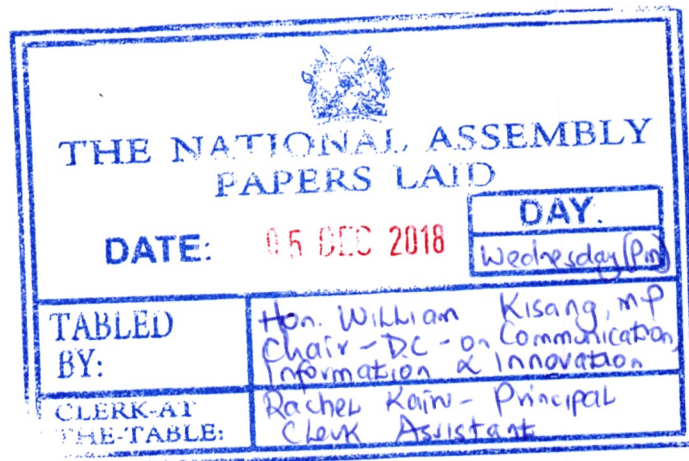 THE NATIONAL ASSEMBLY
PAPERS LAID
DAY.
DATE: 05 DEC 2018 Wednesday (Pm)
TABLED BY: Hon. William Kisang, MP
Chair - DC - on Communication,
Information & Innovation
CLERK-AT THE-TABLE: Rachel - Principal
Clerk Assistant